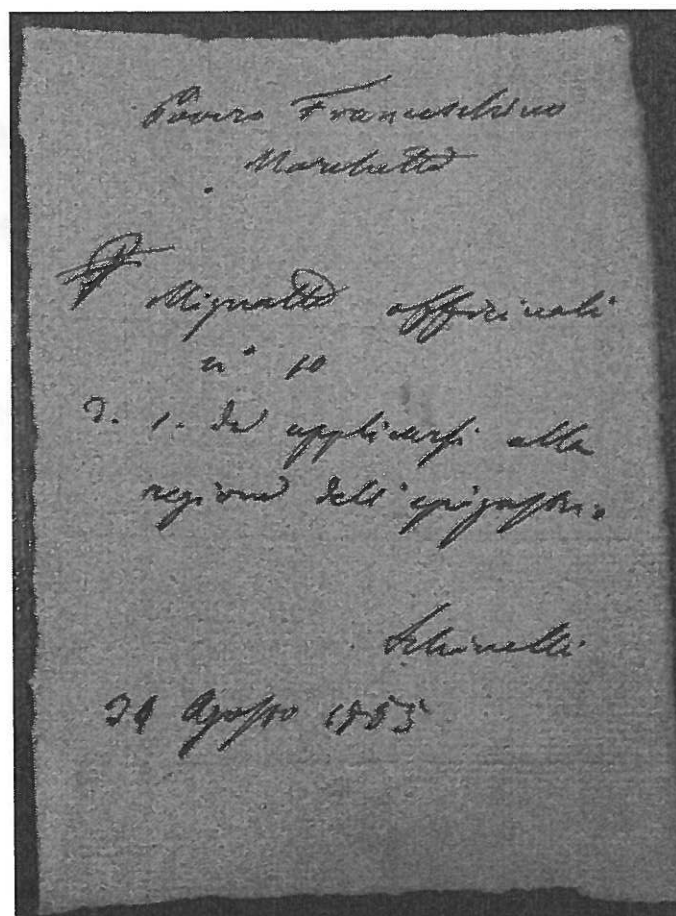 Povero Franceschino
Marchetto
Mignatte officinali
n° 10
d. s. da applicarsi alla
regione dell'epigastrio
Schinelli
Agosto 1853